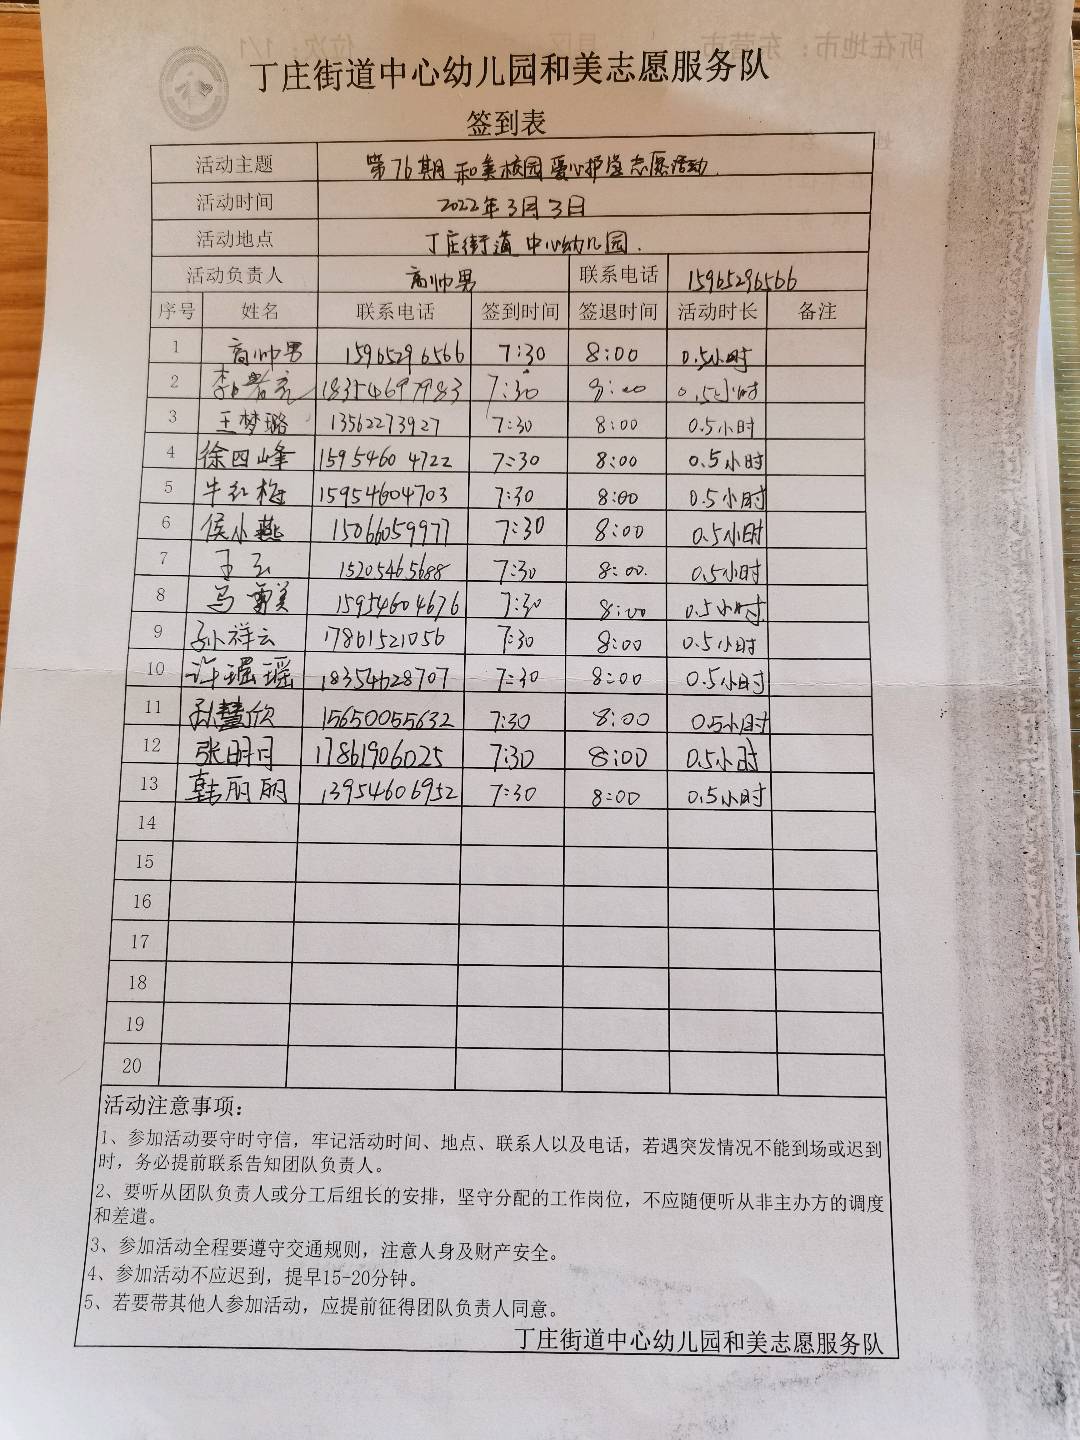 丁庄街道中心幼儿园和美志愿服务队
签到表
活动主题 第76期和美校园爱心护学志愿活动.
活动时间 2022年3月3日
活动地点 丁庄街道中心幼儿园.
活动负责人 高帅男 联系电话 15965296566
序号 姓名 联系电话 签到时间 签退时间 活动时长 备注
1 高帅男 15965296566 7:30 8:00 0.5小时
2 18354697983 7:30 8:00 0.5小时
3 王梦璐 13562273927 7:30 8:00 0.5小时
4 徐四峰 15954604722 7:30 8:00 0.5小时
5 牛红梅 15954604703 7:30 8:00 0.5小时
6 侯小燕 15066059977 7:30 8:00 0.5小时
7 王云 15205465688 7:30 8:00. 0.5小时
8 马雪美 15954604676 7:30 8:00 0.5小时.
9 孙祥云 17861521056 7:30 8:00 0.5小时
10 许瑶 18354628707 7:30 8:00 0.5小时
11 慧欣 15650055632 7:30 8:00 0.5小时
12 张明月 17861906025 7:30 8:00 0.5小时
13 韩丽丽 13954606952 7:30 8:00 0.5小时
14
15
16
17
18
19
20
活动注意事项：
1、参加活动要守时守信，牢记活动时间、地点、联系人以及电话，若遇突发情况不能到场或迟到
时，务必提前联系告知团队负责人。
2、要听从团队负责人或分工后组长的安排，坚守分配的工作岗位，不应随便听从非主办方的调度
和差遣。
3、参加活动全程要遵守交通规则，注意人身及财产安全。
4、参加活动不应迟到，提早15-20分钟。
5、若要带其他人参加活动，应提前征得团队负责人同意。
丁庄街道中心幼儿园和美志愿服务队